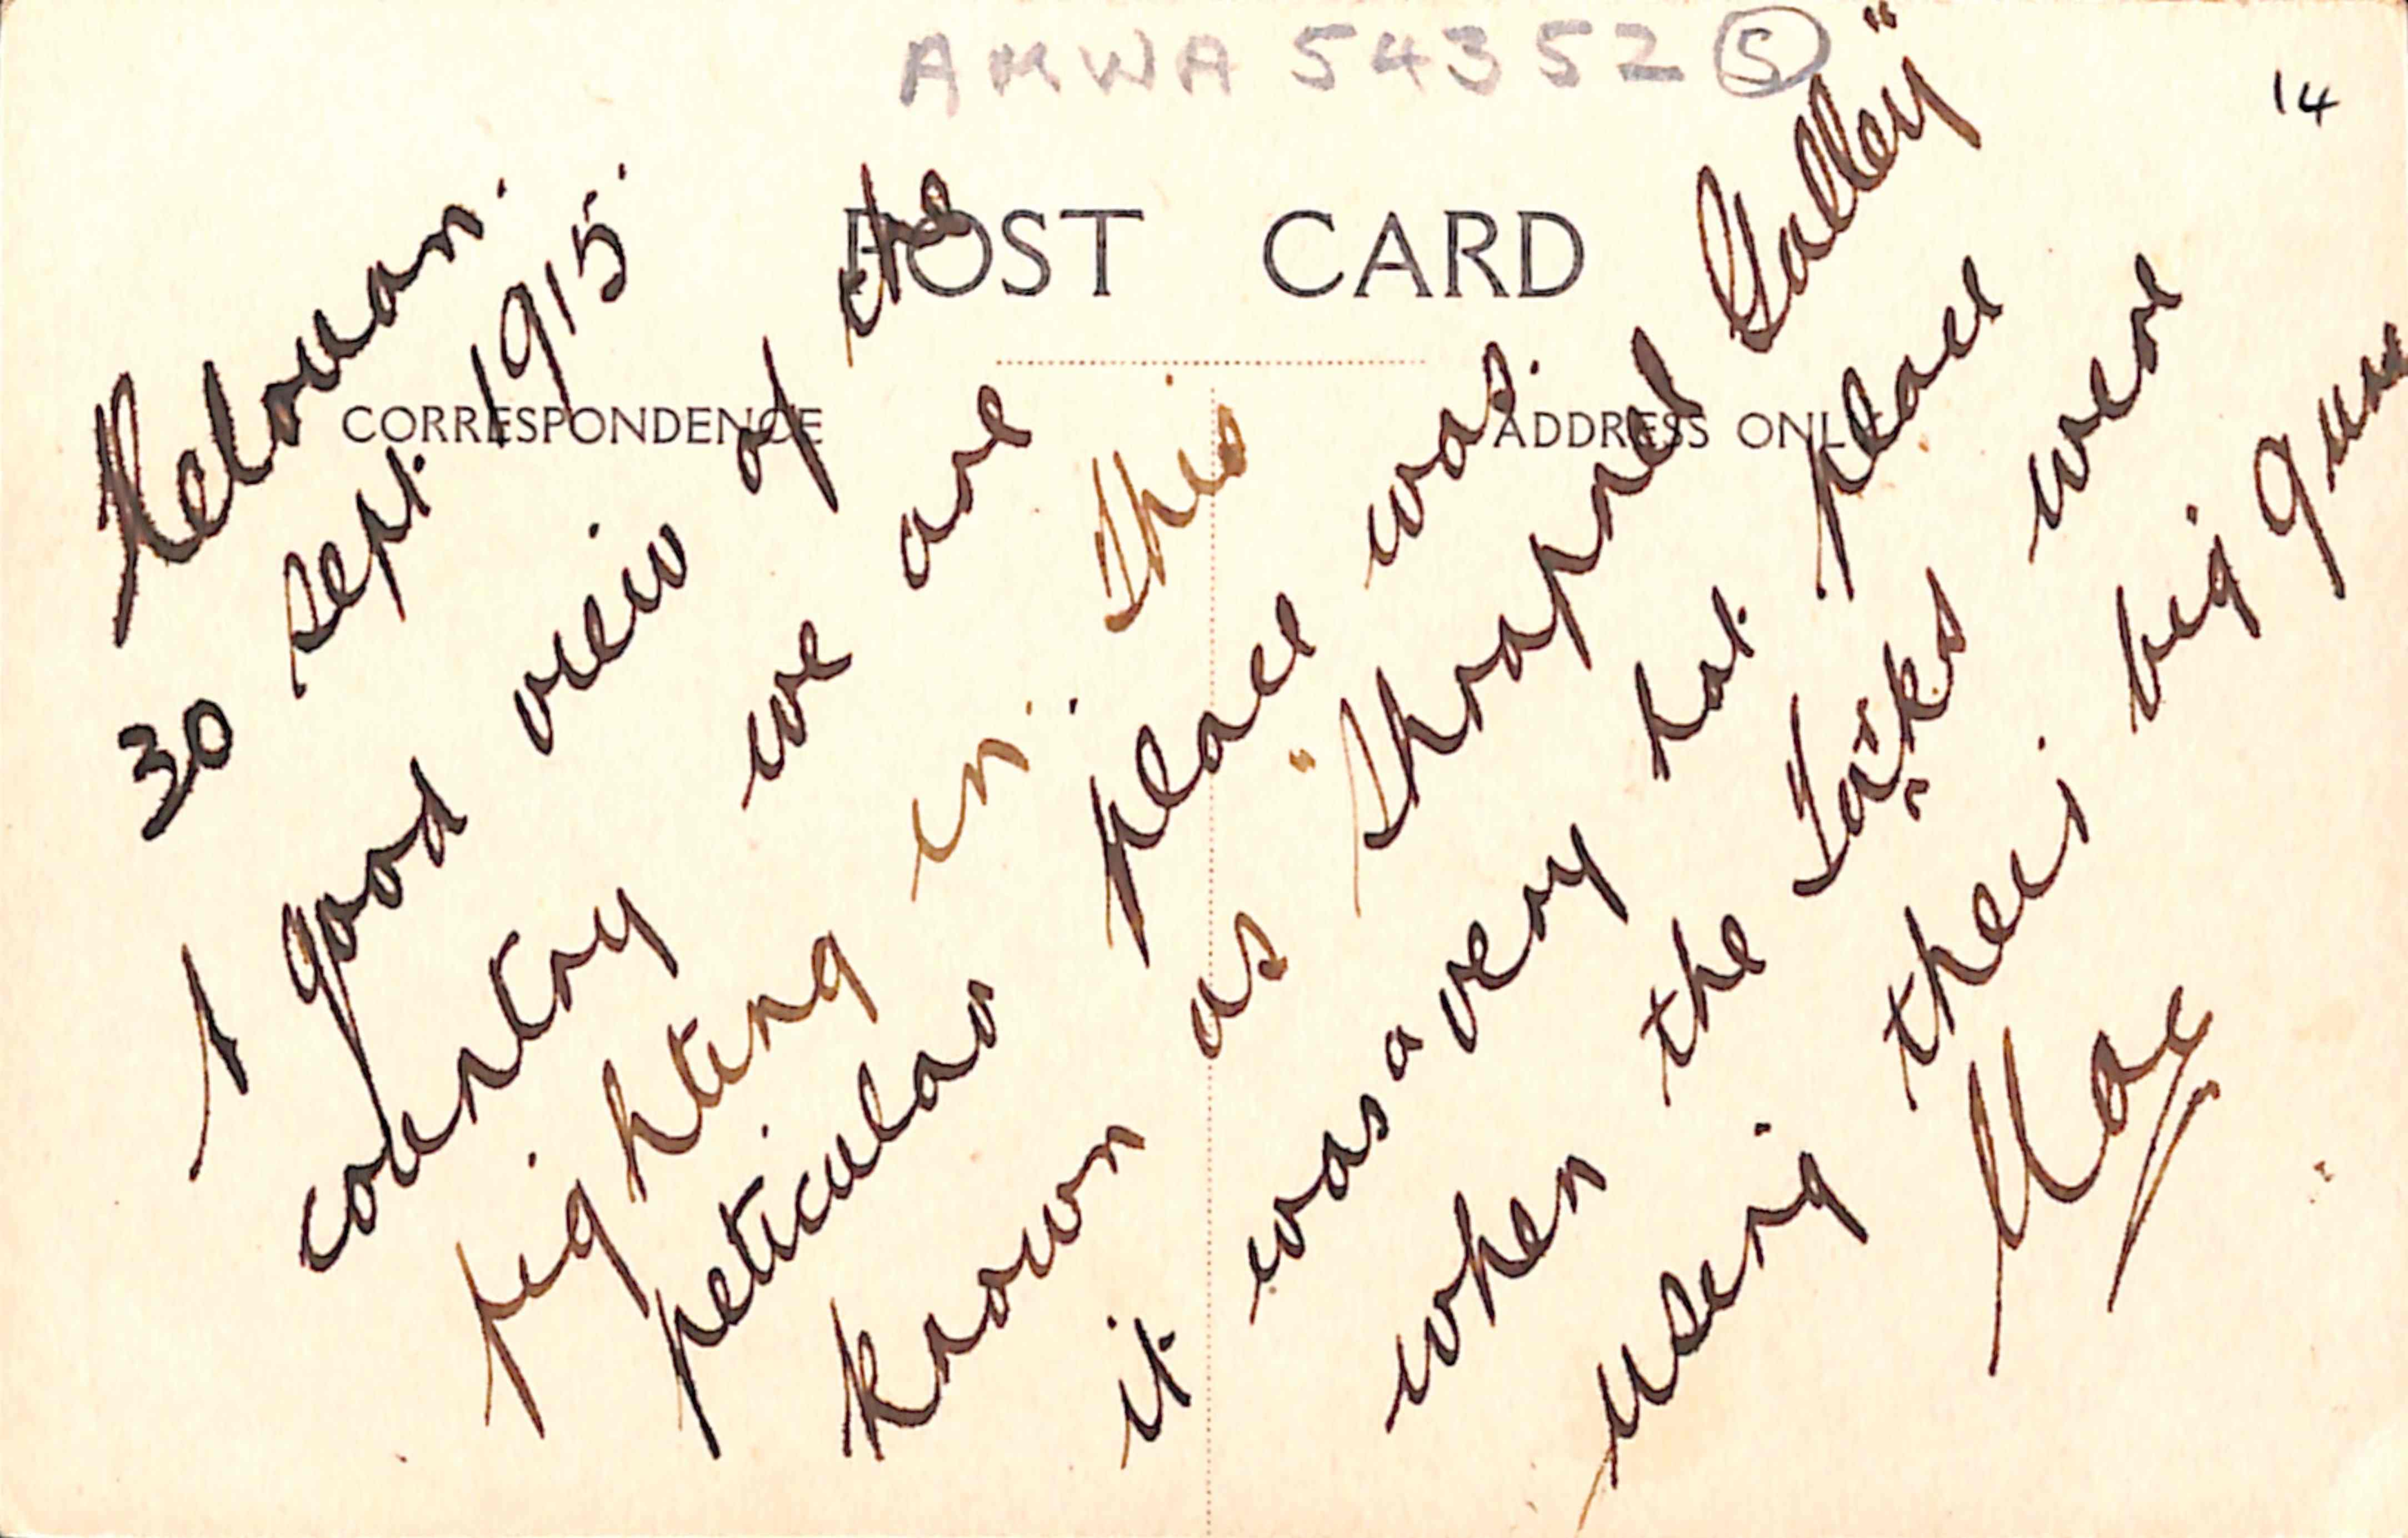 AMWA 54352 (5)
14
POST CARD
CORRESPONDENCE
ADDRESS ONLY
Helouan.
30 Sept. 1915.
A good view of the
country we are
fighting in. This
peticular place was.
known as "Shrapnel Gulley"
it was a very hot place
when the Turks were
using their big guns
Mac